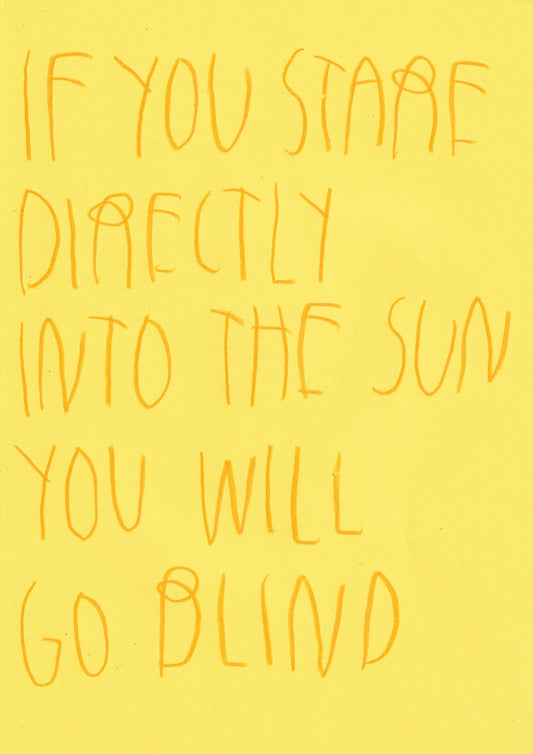 IF YOU STARE
DIRECTLY
INTO THE SUN
YOU WILL
GO BLIND